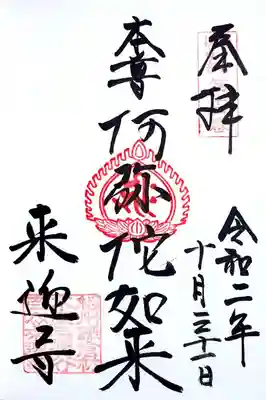 奉拝
令和二年
十月三十一日
本尊阿弥陀如来
来迎寺